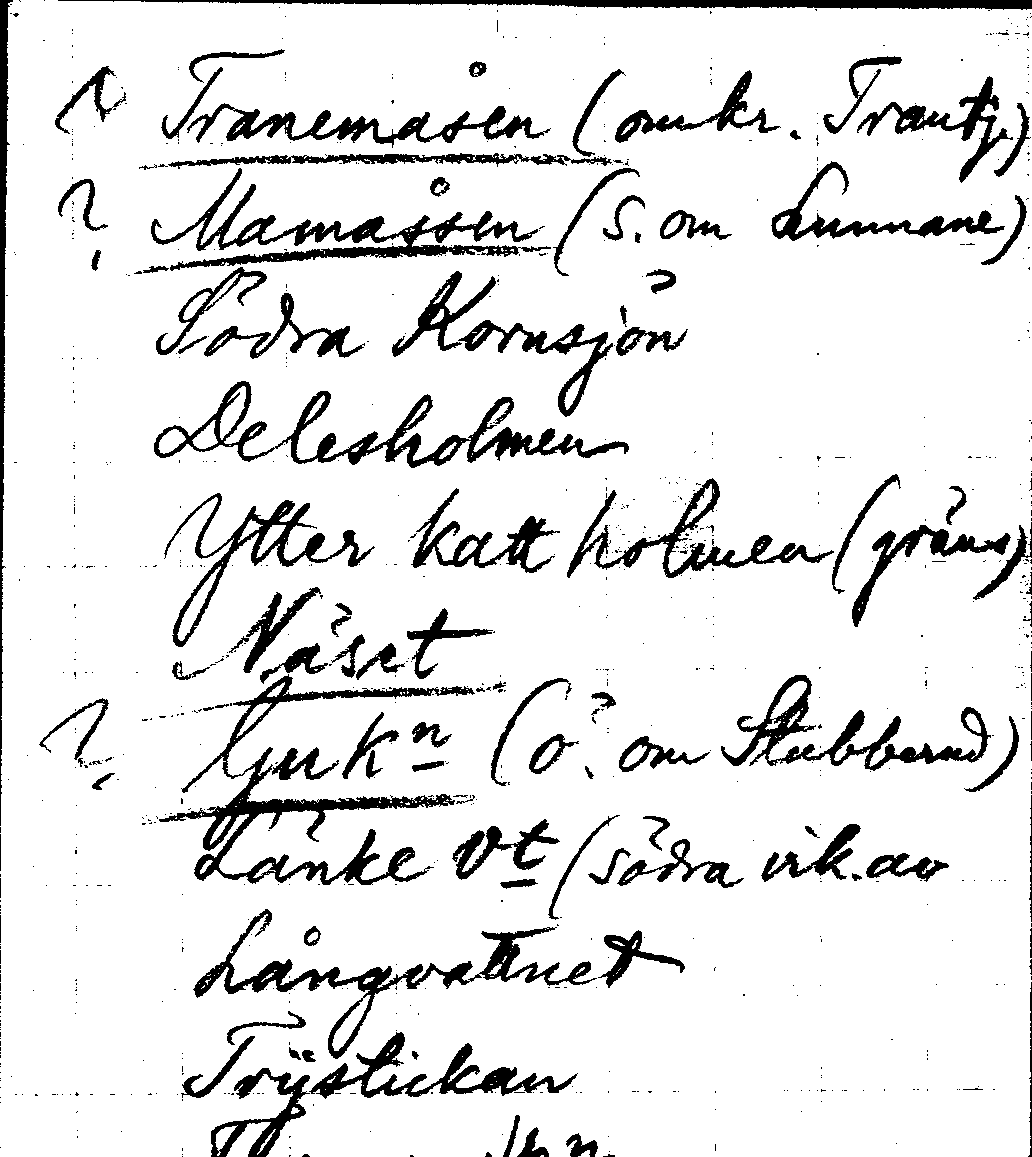 ? Tranemåsen (omkr. Trantj.)
? Mamåssen (S. om Lunnane)
Södra Kornsjön
Delesholmen
Ytter katt holmen (gräns)
Näset
? Gjuk<u>n</u> (ö. om Stubberud)
Länke v<u>t</u> (södra vik. av
Långvattnet
Trÿstickan